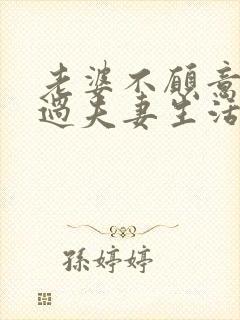 老婆不愿意
过夫妻生活
孫婷婷